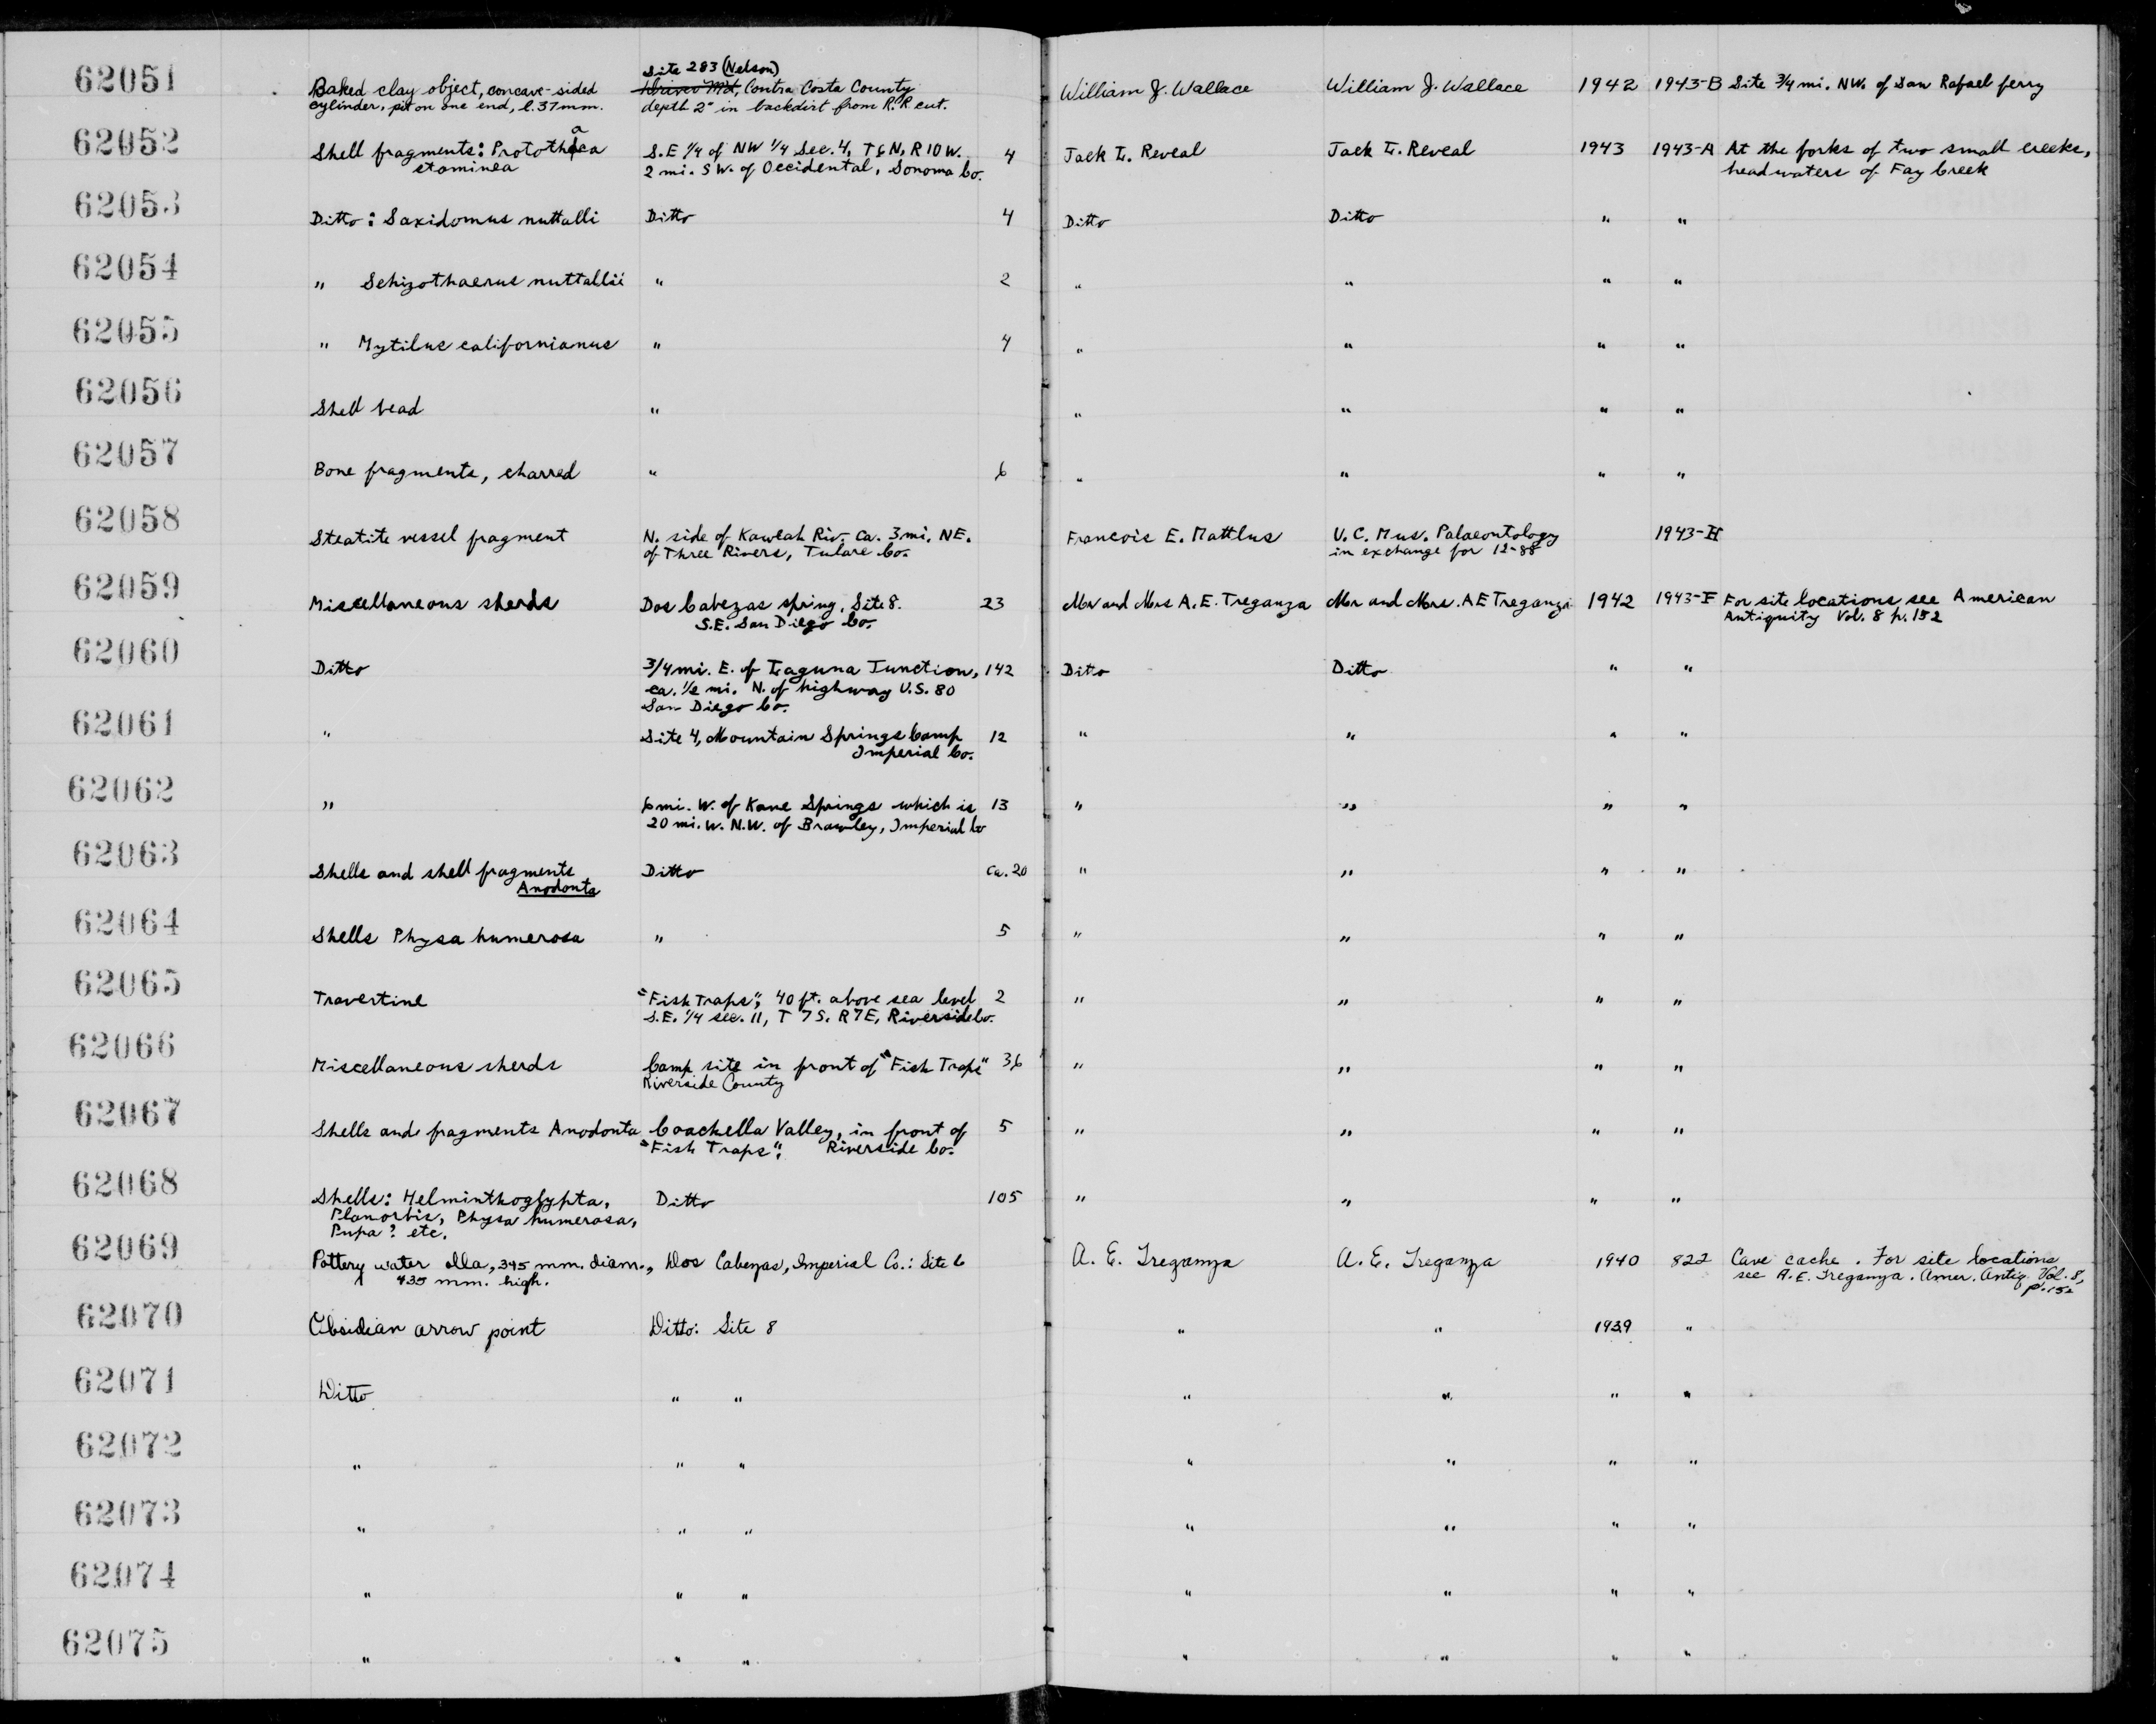 62051 Baked clay object, concave-sided Site 283 (Nelson) Contra Costa County William J. Wallace William J. Wallace 1942 1943-B Site 3/4 mi. NW. of San Rafael ferry
cylinder, pit on one end, l. 37mm. depth 2" in backdirt from R.R. cut.
62052 Shell fragments: Protothaca S.E 1/4 of NW 1/4 Sec. 4, T6N, R10W. 4 Jack L. Reveal Jack L. Reveal 1943 1943-A At the forks of two small creeks,
staminea 2 mi. SW. of Occidental, Sonoma Co. headwaters of Fay Creek
62053 Ditto: Saxidomus nuttalli Ditto 4 Ditto Ditto " "
62054 " Schizothaerus nuttallii " 2 " " " "
62055 " Mytilus californianus " 4 " " " "
62056 Shell bead " " " " "
62057 Bone fragments, charred " 6 " " " "
62058 Steatite vessel fragment N. side of Kaweah Riv. Ca. 3 mi. NE. Francois E. Matthes U.C. Mus. Palaeontology 1943-H
of Three Rivers, Tulare Co. in exchange for 12-88
62059 Miscellaneous sherds Dos Cabezas spring, Site 8. 23 Mr and Mrs A.E. Treganza Mr and Mrs. A E Treganza 1942 1943-F For site locations see American
S.E. San Diego Co. Antiquity Vol. 8 p. 152
62060 Ditto 3/4 mi. E. of Laguna Junction, 142 Ditto Ditto " "
ca. 1/2 mi. N. of highway U.S. 80
San Diego Co.
62061 " Site 4, Mountain Springs Camp 12 " " " "
Imperial Co.
62062 " 6 mi. W. of Kane Springs which is 13 " " " "
20 mi. W. N.W. of Brawley, Imperial Co
62063 Shells and shell fragments Ditto ca. 20 " " " "
Anodonta
62064 Shells Physa humerosa " 5 " " " "
62065 Travertine "Fish Traps", 40 ft. above sea level 2 " " " "
S.E. 1/4 sec. 11, T 7S. R7E, Riverside Co.
62066 Miscellaneous sherds Camp site in front of "Fish Traps" 36 " " " "
Riverside County
62067 Shells and fragments Anodonta Coachella Valley, in front of 5 " " " "
"Fish Traps", Riverside Co.
62068 Shells: Helminthoglypta, Ditto 105 " " " "
Planorbis, Physa humerosa,
Pupa? etc.
62069 Pottery water olla, 345 mm. diam., Dos Cabezas, Imperial Co.: Site 6 A. E. Treganza A. E. Treganza 1940 822 Cave cache. For site locations
435 mm. high. see A.E. Treganza. Amer. Antiq. Vol. 8,
p. 152
62070 Obsidian arrow point Ditto: Site 8 " " 1939 "
62071 Ditto " " " " " "
62072 " " " " " " "
62073 " " " " " " "
62074 " " " " " " "
62075 " " " " " " "